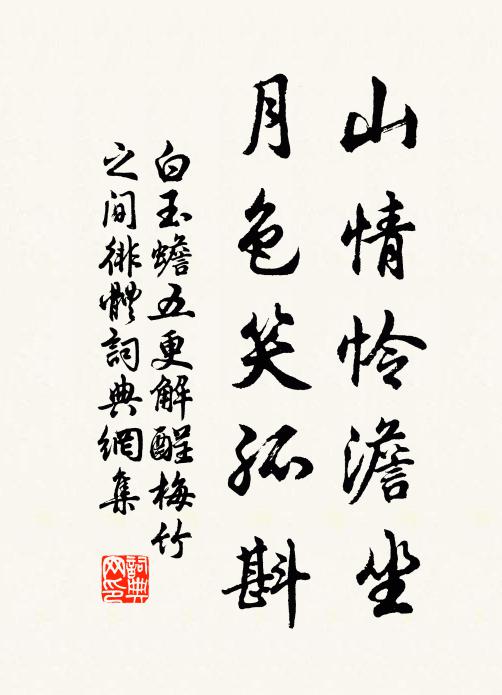 山情怜澹坐
月色笑孤斟
白玉蟾五更解酲梅竹
之间徘體詞典網集
詞典
网印